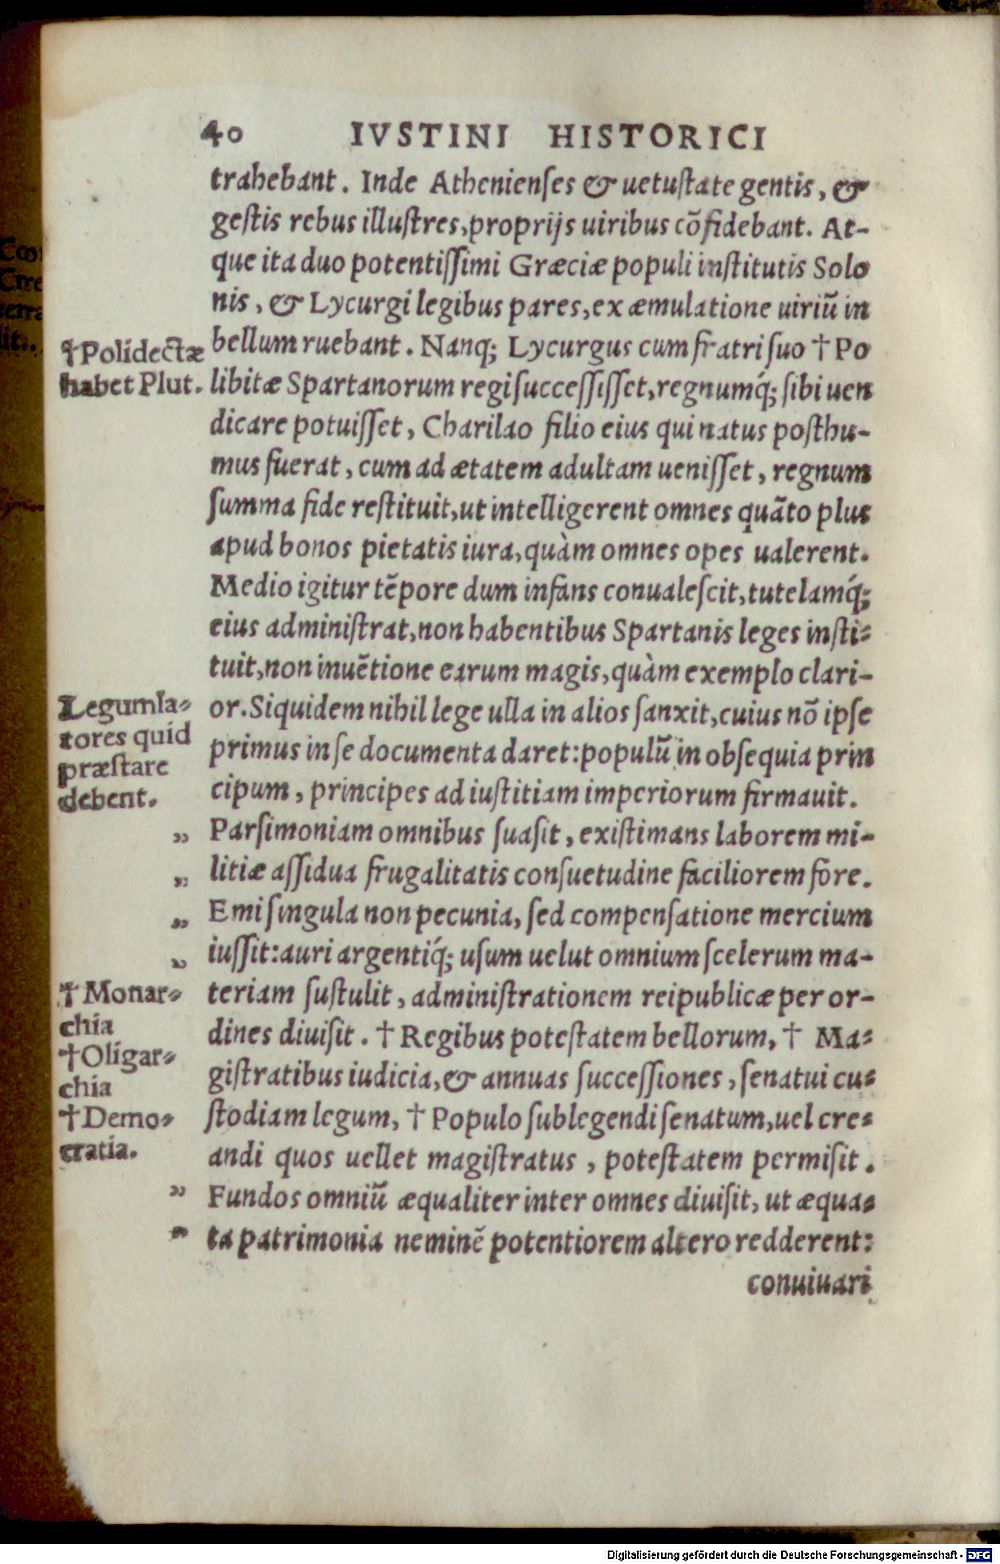 40 IVSTINI HISTORICI
trahebant. Inde Athenienses & uetustate gentis, &
gestis rebus illustres, proprijs uiribus cõfidebant. At-
que ita duo potentissimi Græciæ populi institutis Solo
nis, & Lycurgi legibus pares, ex æmulatione uiriũ in
bellum ruebant. Nanq; Lycurgus cum fratri suo † Po
libitæ Spartanorum regi successisset, regnumq́; sibi uen
dicare potuisset, Charilao filio eius qui natus posthu-
mus fuerat, cum ad ætatem adultam uenisset, regnum
summa fide restituit, ut intelligerent omnes quãto plus
apud bonos pietatis iura, quàm omnes opes ualerent.
Medio igitur tẽpore dum infans conualescit, tutelamq́;
eius administrat, non habentibus Spartanis leges insti-
tuit, non inuẽtione earum magis, quàm exemplo clari-
or. Siquidem nihil lege ulla in alios sanxit, cuius nõ ipse
primus in se documenta daret: populũ in obsequia prin
cipum, principes ad iustitiam imperiorum firmauit.
„ Parsimoniam omnibus suasit, existimans laborem mi-
„ litiæ assidua frugalitatis consuetudine faciliorem fore.
„ Emi singula non pecunia, sed compensatione mercium
„ iussit: auri argentiq́; usum uelut omnium scelerum ma-
teriam sustulit, administrationem reipublicæ per or-
dines diuisit. † Regibus potestatem bellorum, † Ma-
gistratibus iudicia, & annuas successiones, senatui cu-
stodiam legum, † Populo sublegendi senatum, uel cre-
andi quos uellet magistratus, potestatem permisit.
„ Fundos omniũ æqualiter inter omnes diuisit, ut æqua-
„ ta patrimonia neminẽ potentiorem altero redderent:
conuiuari
†Polidectæ
habet Plut.
Legumla-
tores quid
præstare
debent.
† Monar-
chia
†Oligar-
chia
†Demo-
cratia.
Digitalisierung gefördert durch die Deutsche Forschungsgemeinschaft - DFG